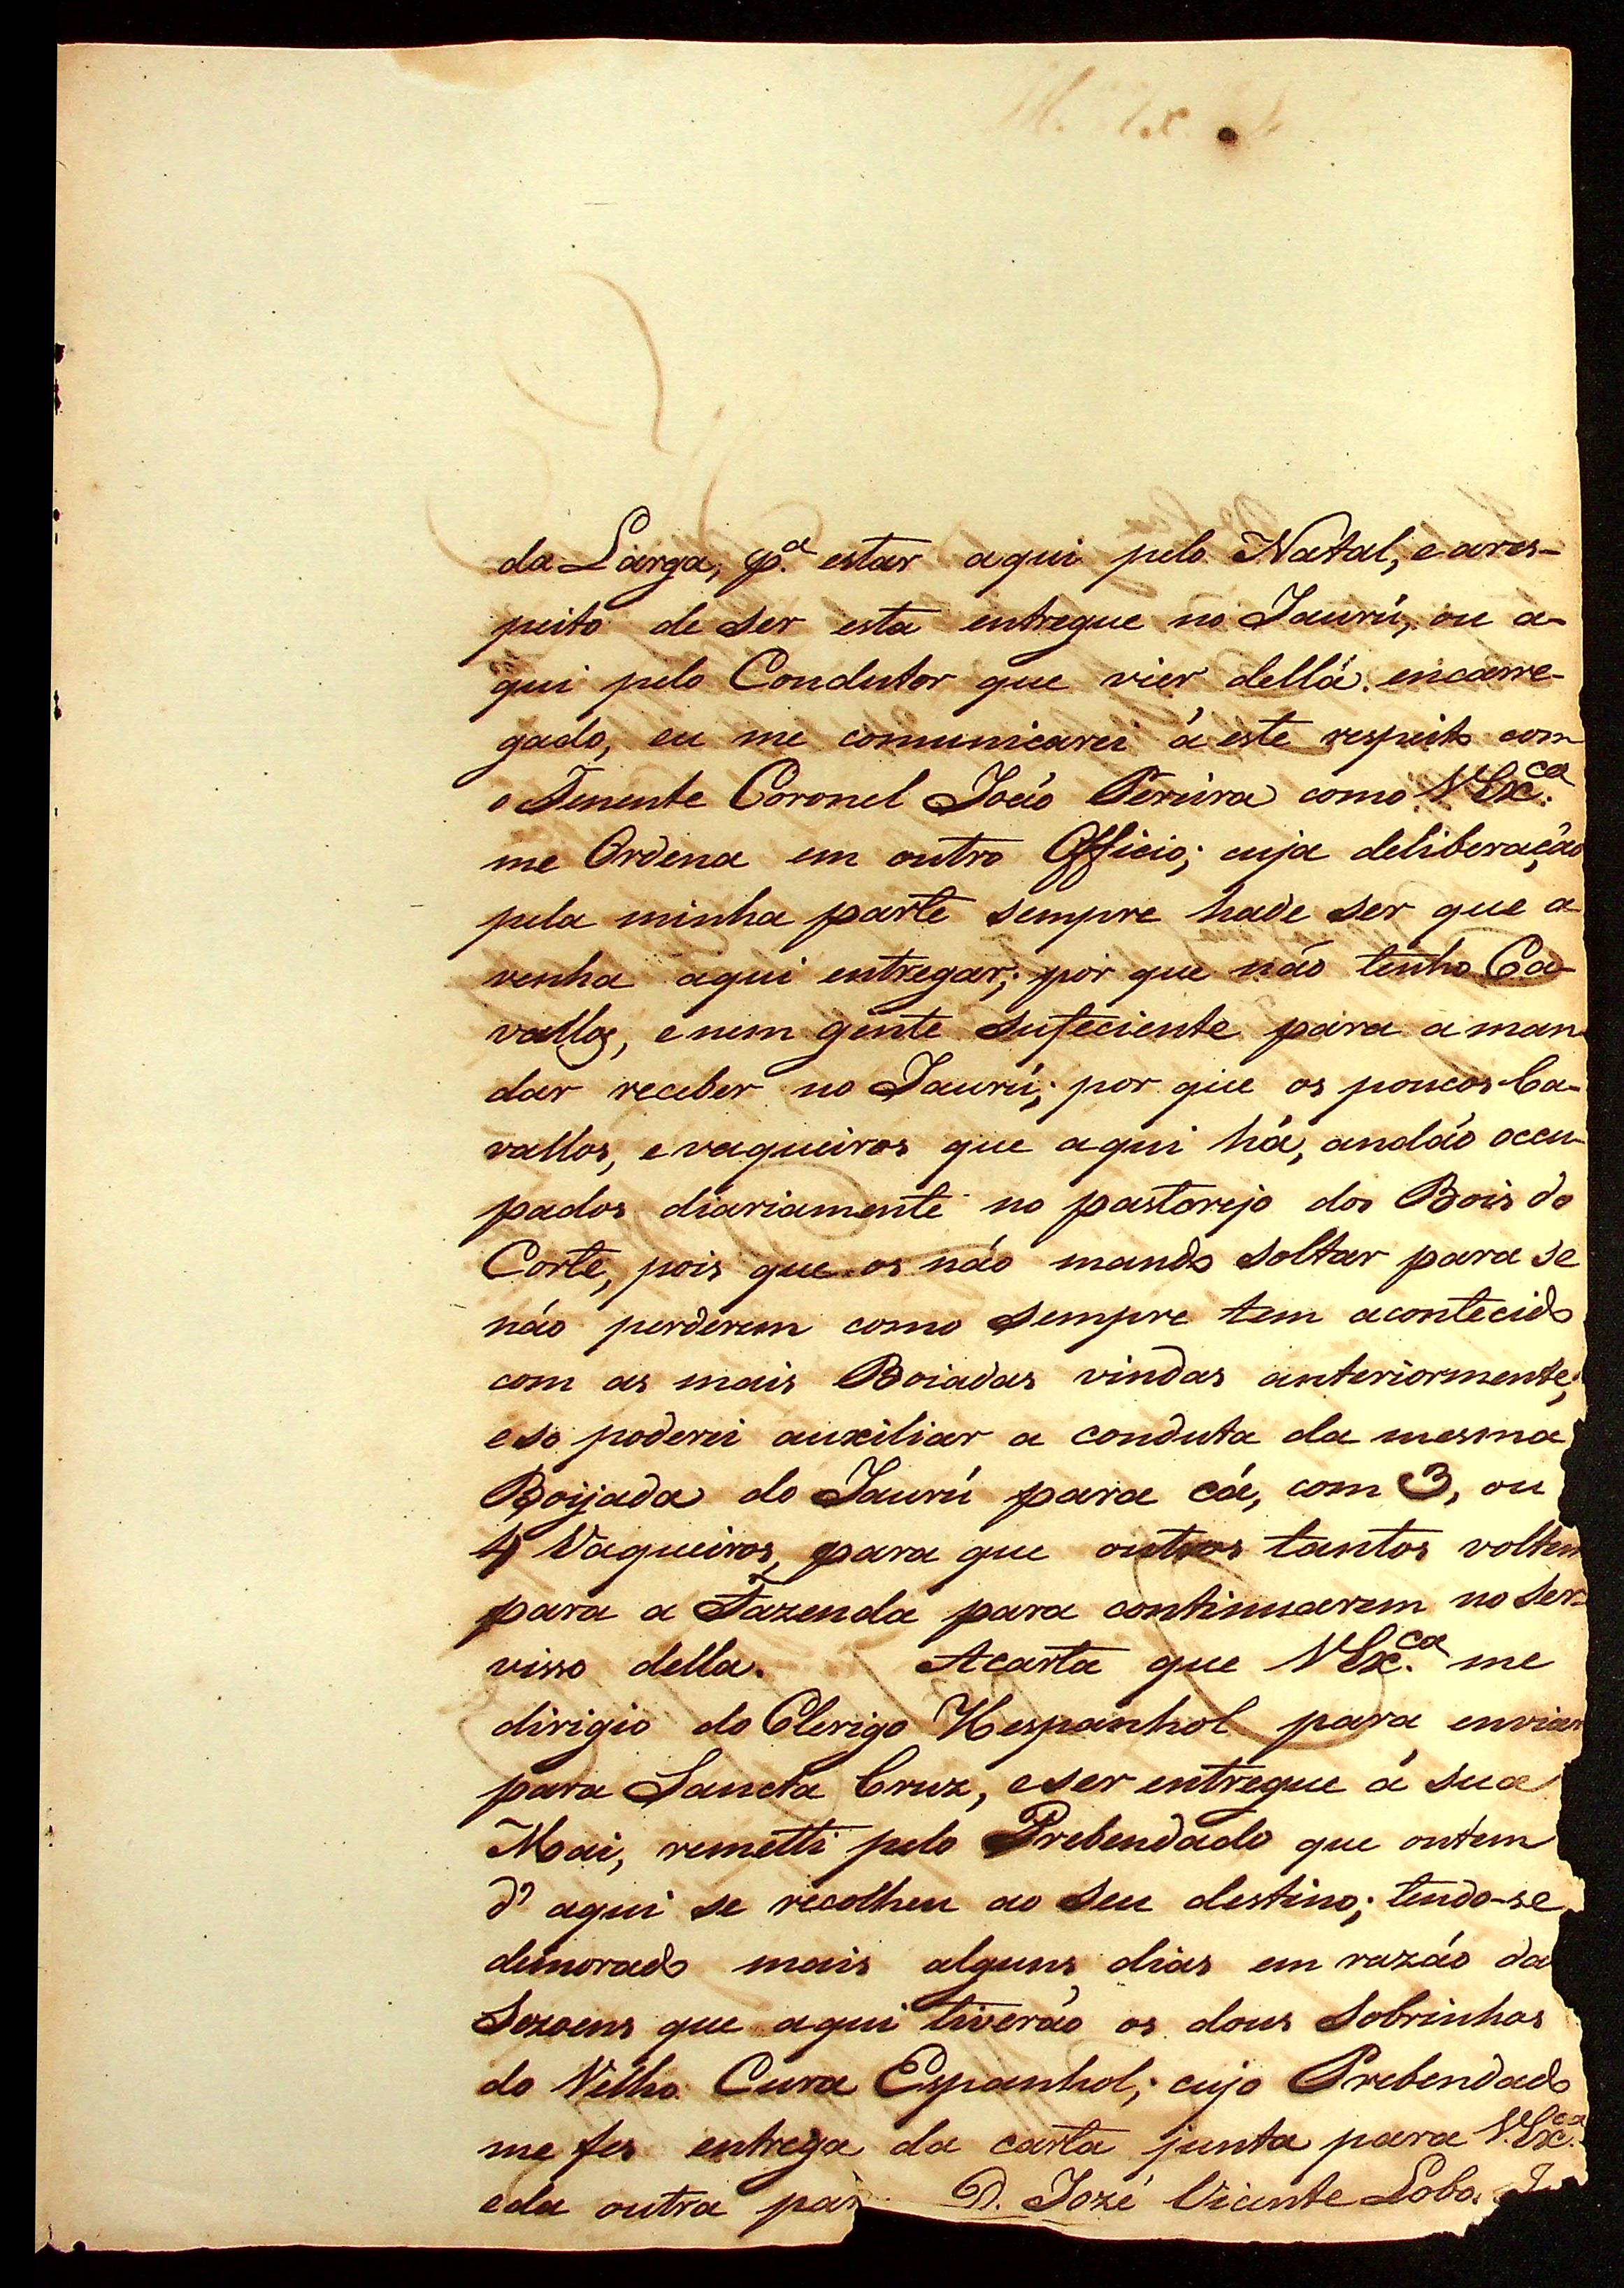 da Larga, p.ª estar aqui pelo Natal, e ares-
peito de ser esta entregue no Jaurú, ou a-
qui pelo Condutor que vier della encarre-
gado, eu me comunicarei á este respeito com
o Tenente Coronel João Pereira como VEx.ca
me Ordena em outro Officio; cuja deliberação
pela minha parte sempre hade ser que a
venha aqui entregar; por que não tenho Ca-
vallos, e nem gente sufeciente para a man-
dar receber no Jaurú; por que os poucos Ca-
vallos, e vaqueiros que aqui há, andão occu-
pados diariamente no pastorejo dos Bois do
Corte, pois que os não mando soltar para se
não perderem como sempre tem acontecido
com as mais Boiadas vindas anteriormente;
e so poderei auxiliar a conduta da mesma
Boijada do Jaurú para cá, com 3, ou
4 Vaqueiros, para que outros tantos voltem
para a Fazenda para continuarem no ser-
visso della. Acarta que VEx.ca me
dirigio do Clerigo Hespanhol para enviar
para Sancta Cruz, e ser entregue á sua
Mai, remetti pelo Prebendado que ontem
d'aqui se recolheu ao seu destino; tendo-se
demorado mais alguns dias em razão da
Sezoens que aqui tiverão os dous Sobrinhos
do Velho Cura Espanhol; cujo Prebendado
me fes entrega da carta junta para V.Ex.ca
e da outra par D. Jozé Vicente Lobo.